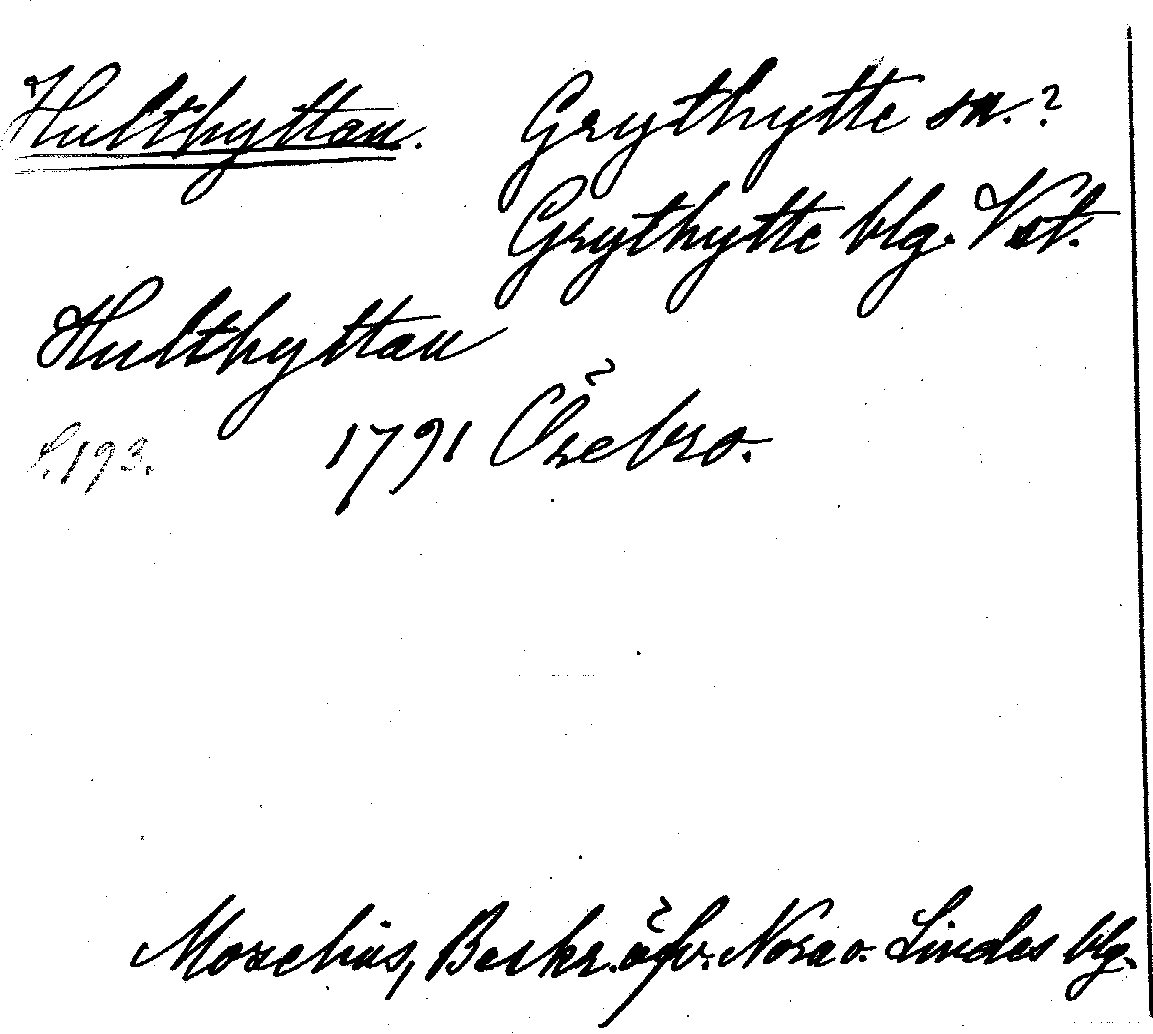 Hulthyttan. Grythytte sn.?
Grythytte blg. Vstl.
Hulthyttan
S. 193. 1791 Örebro.
Morelius, Beskr. öfv. Nora o. Lindes blg.